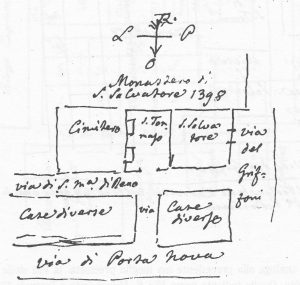 L P
O
Monastero di
S. Salvatore 1398
Cimitero
S. Tom-
maso
S. Salva-
tore
via
del
Grif-
foni
via di S. Ma. di Reno
Case diverse
via
Case
diverse
via di Porta Nova